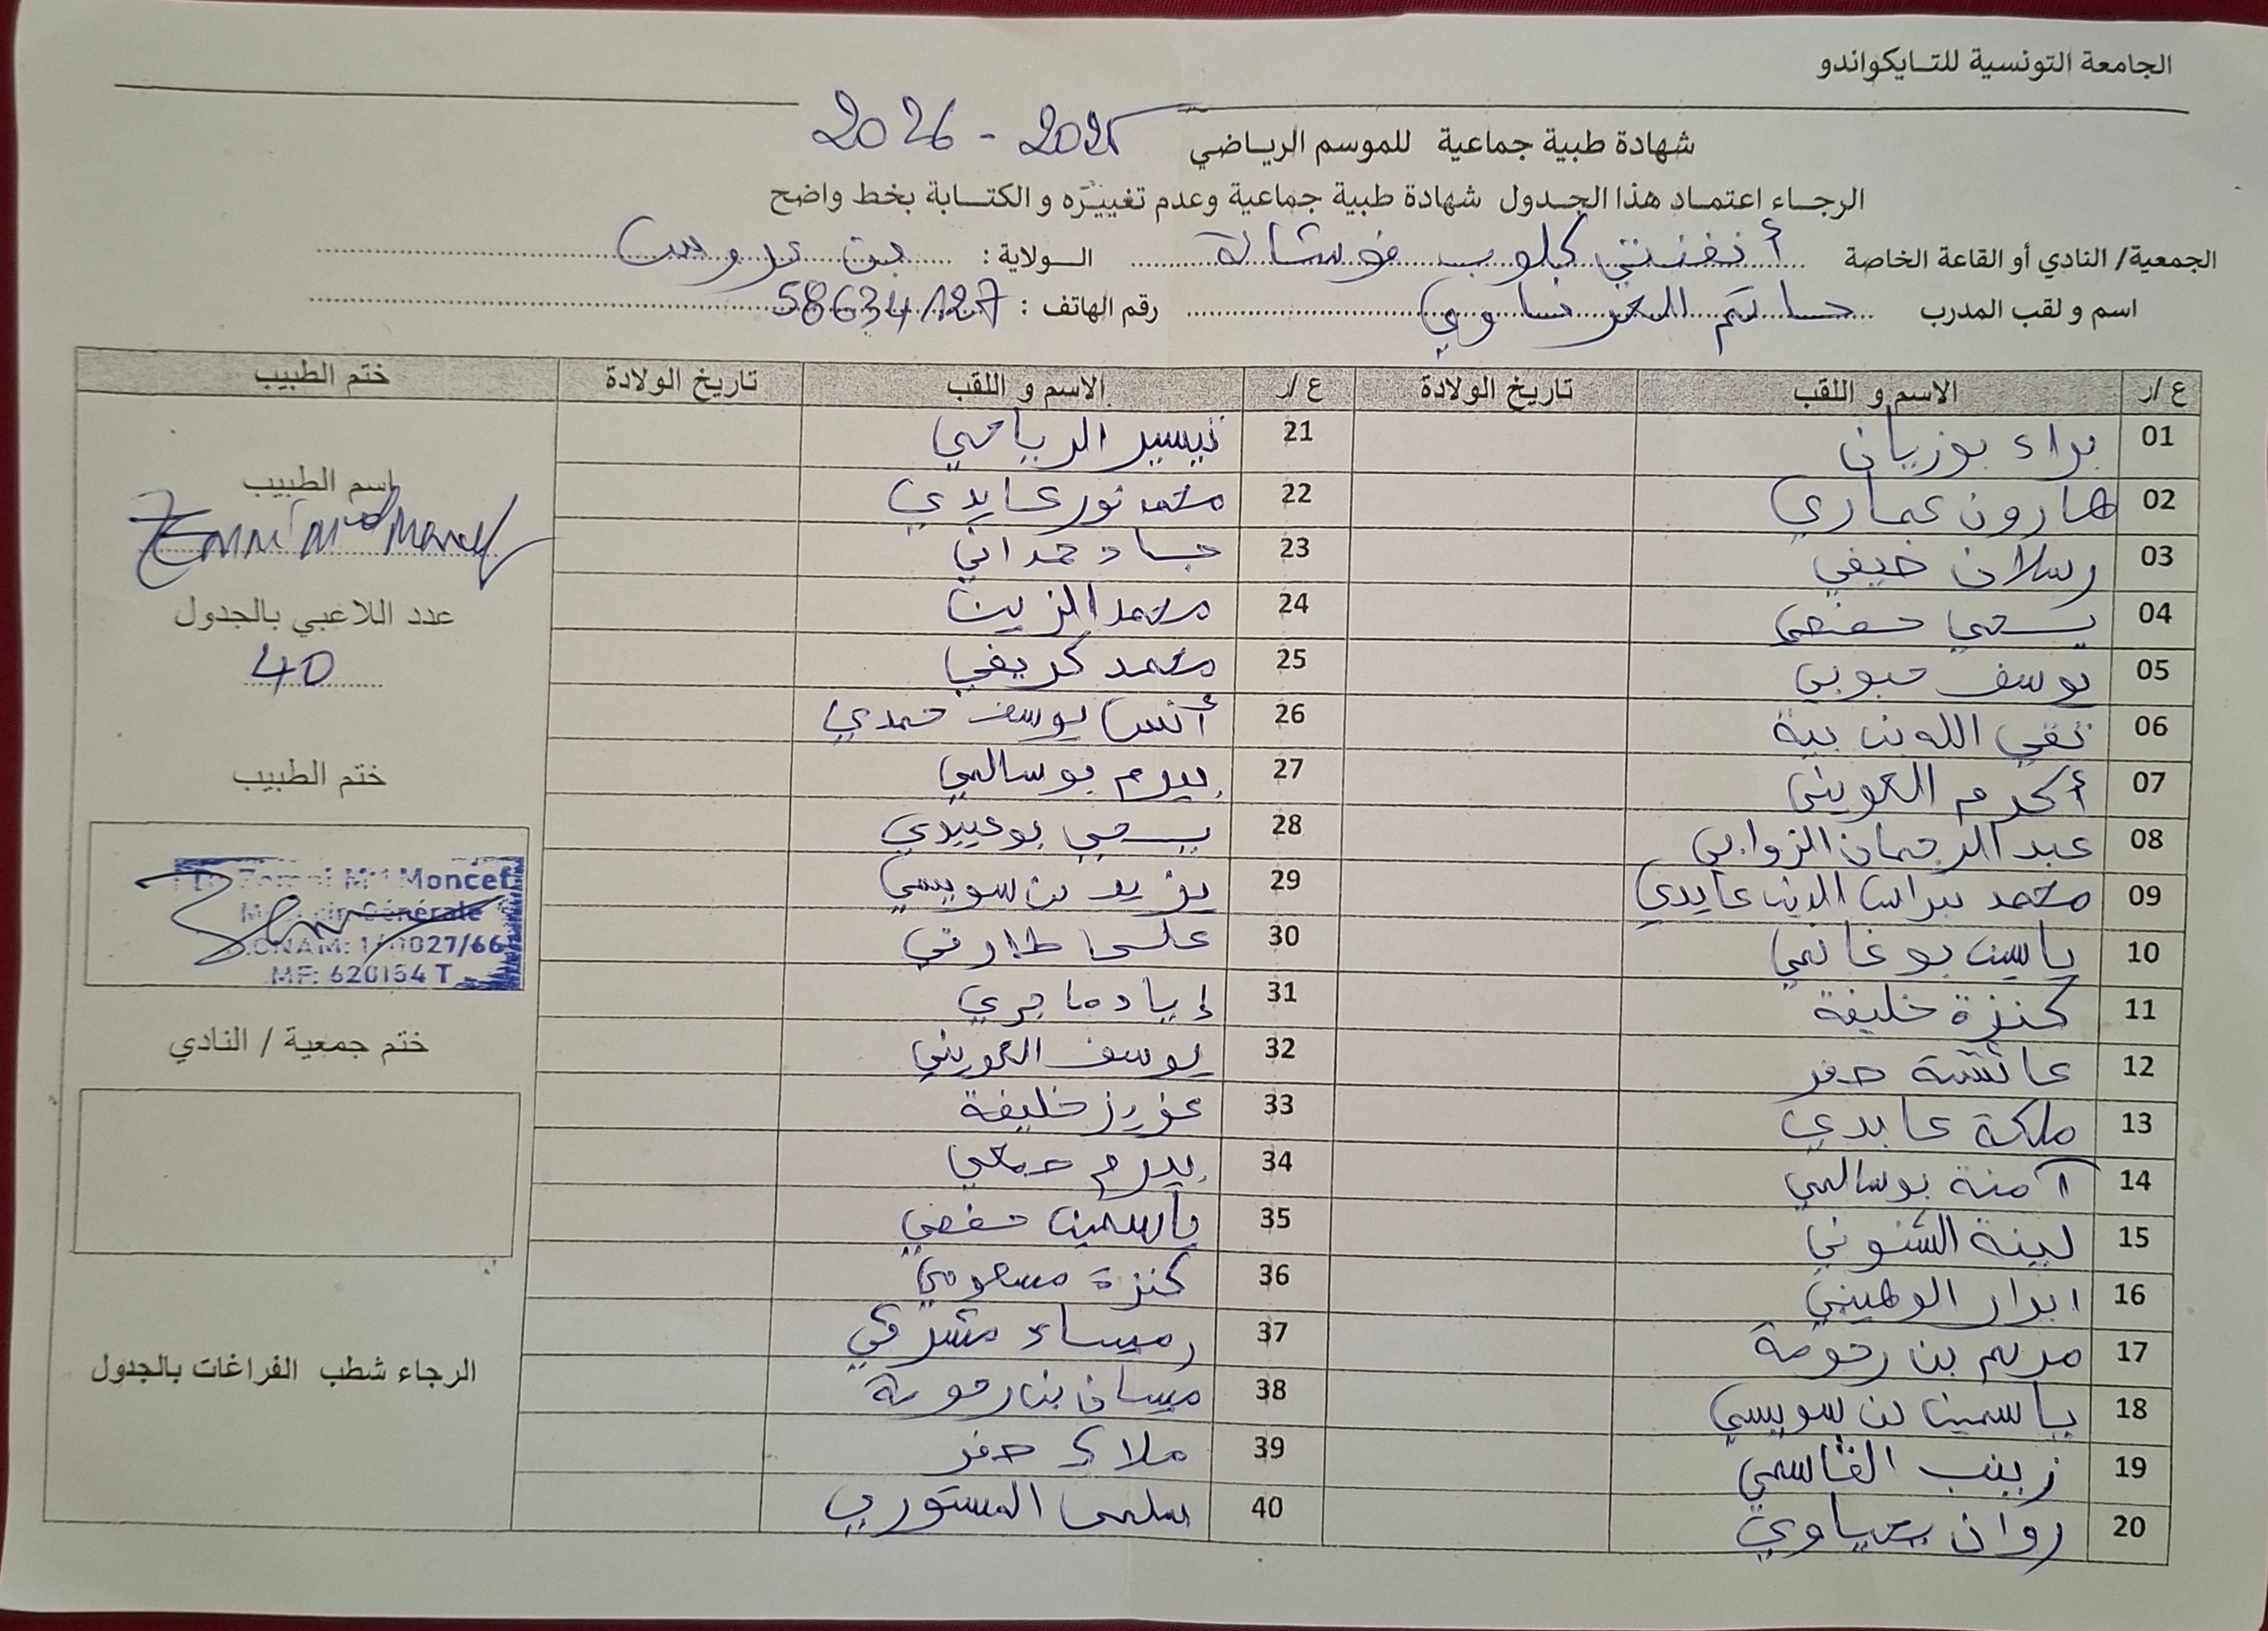 الجامعة التونسية للتايكواندو
شهادة طبية جماعية للموسم الرياضي 2025 - 2026
الرجاء اعتماد هذا الجدول شهادة طبية جماعية وعدم تغييره و الكتابة بخط واضح
الجمعية/ النادي أو القاعة الخاصة أنفنتي كلوب فوشانة الولاية : بن عروس
اسم و لقب المدرب حاتم رقم الهاتف : 58634127
ع /ر الاسم و اللقب تاريخ الولادة ع /ر الاسم و اللقب تاريخ الولادة ختم الطبيب
01 براء بوزيان 21 تيسير الرياحي
02 هارون عماري 22 محمد نور عايدي
03 رسلان ضيفي 23 جاد حمداني
04 يحي حفصي 24 محمد الزين
05 يوسف حبوبي 25 محمد كريفي
06 تقي الله بن بية 26 أنس يوسف حمدي
07 أكرم العويني 27 بيرم بوسالمي
08 عبد الرحمان الزوابي 28 يحي بوعبيدي
09 محمد الدين عايدي 29 يزيد بن سويسي
10 ياسين بوغانمي 30 طارقي
11 كنزة خليفة 31 إياد ماجري
12 عائشة حفر 32 يوسف العويني
13 ملكة عابدي 33 عزيز خليفة
14 آمنة بوسالمي 34 بيرم
15 لينة الشنوني 35 ياسمين حفصي
16 ابرار الوهيبي 36 كنزة
17 مريم بن رحومة 37 رميساء مشرقي
18 ياسمين بن سويسي 38 ميسان بن رحومة
19 زينب القاسمي 39 ملاك حفر
20 روان يحياوي 40 سلمى المستوري
اسم الطبيب
Zemni Med Moncef
عدد اللاعبي بالجدول
40
ختم الطبيب
Dr Zemni Med Moncef
Médecin Générale
CNAM: 1/ 0027/66
MF: 620154 T
ختم جمعية / النادي
الرجاء شطب الفراغات بالجدول